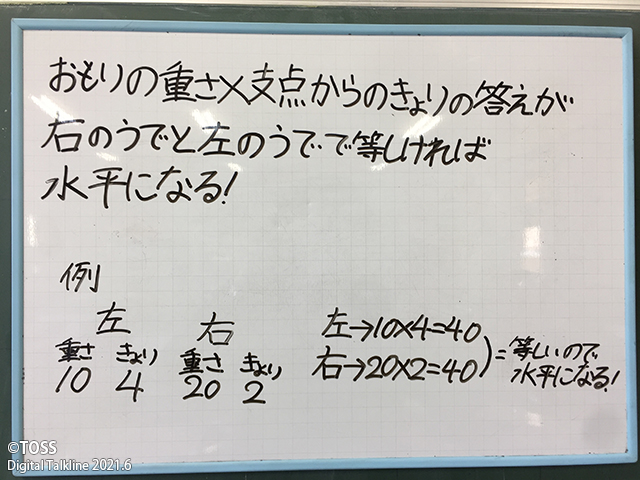 おもりの重さ×支点からのきょりの答えが
右のうでと左のうでで等しければ
水平になる!
例
左 右
重さ きょり 重さ きょり
10 4 20 2
左→10×4=40
右→20×2=40
)=等しいので
水平になる!
©TOSS
Digital Talkline 2021.6